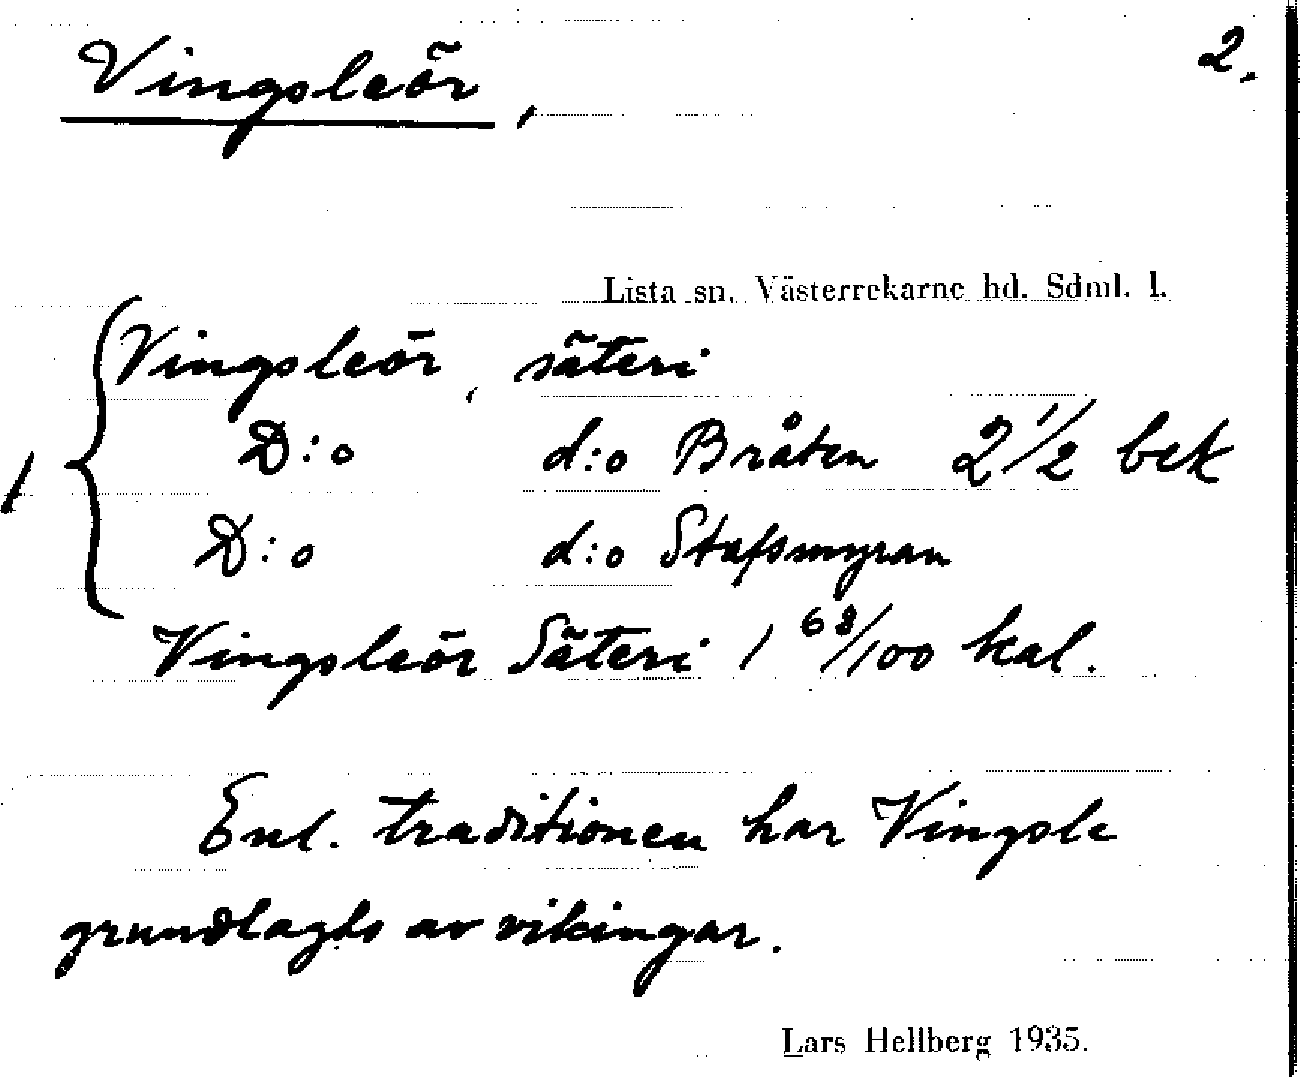 Vingsleör, 2.
Lista sn. Västerrekarne hd. Sdml. l.
Vingsleör, säteri
1 D:o d:o Bråten 2 1/2 bek
D:o d:o Stafsmyran
Vingsleör Säteri 1 68/100 kal.
Enl. traditionen har Vingsle
grundlagts av vikingar.
Lars Hellberg 1935.